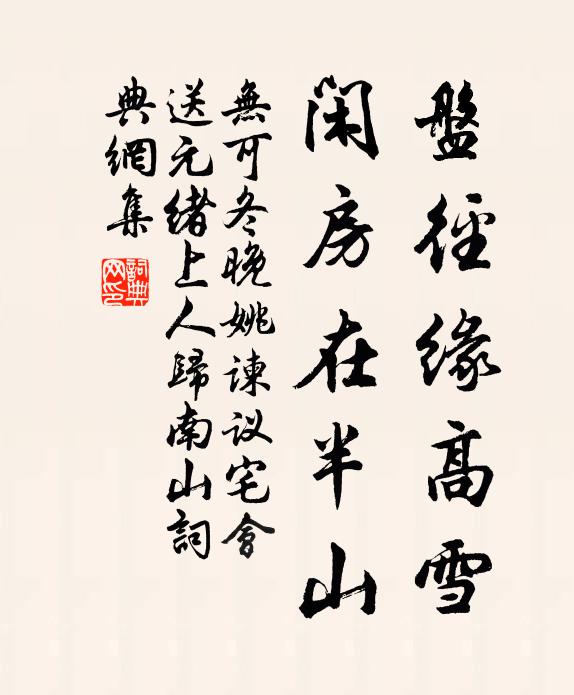 盤徑緣高雪
閑房在半山
無可冬晚姚諫议宅會
送元緒上人歸南山詞
典網集
詞典
网印